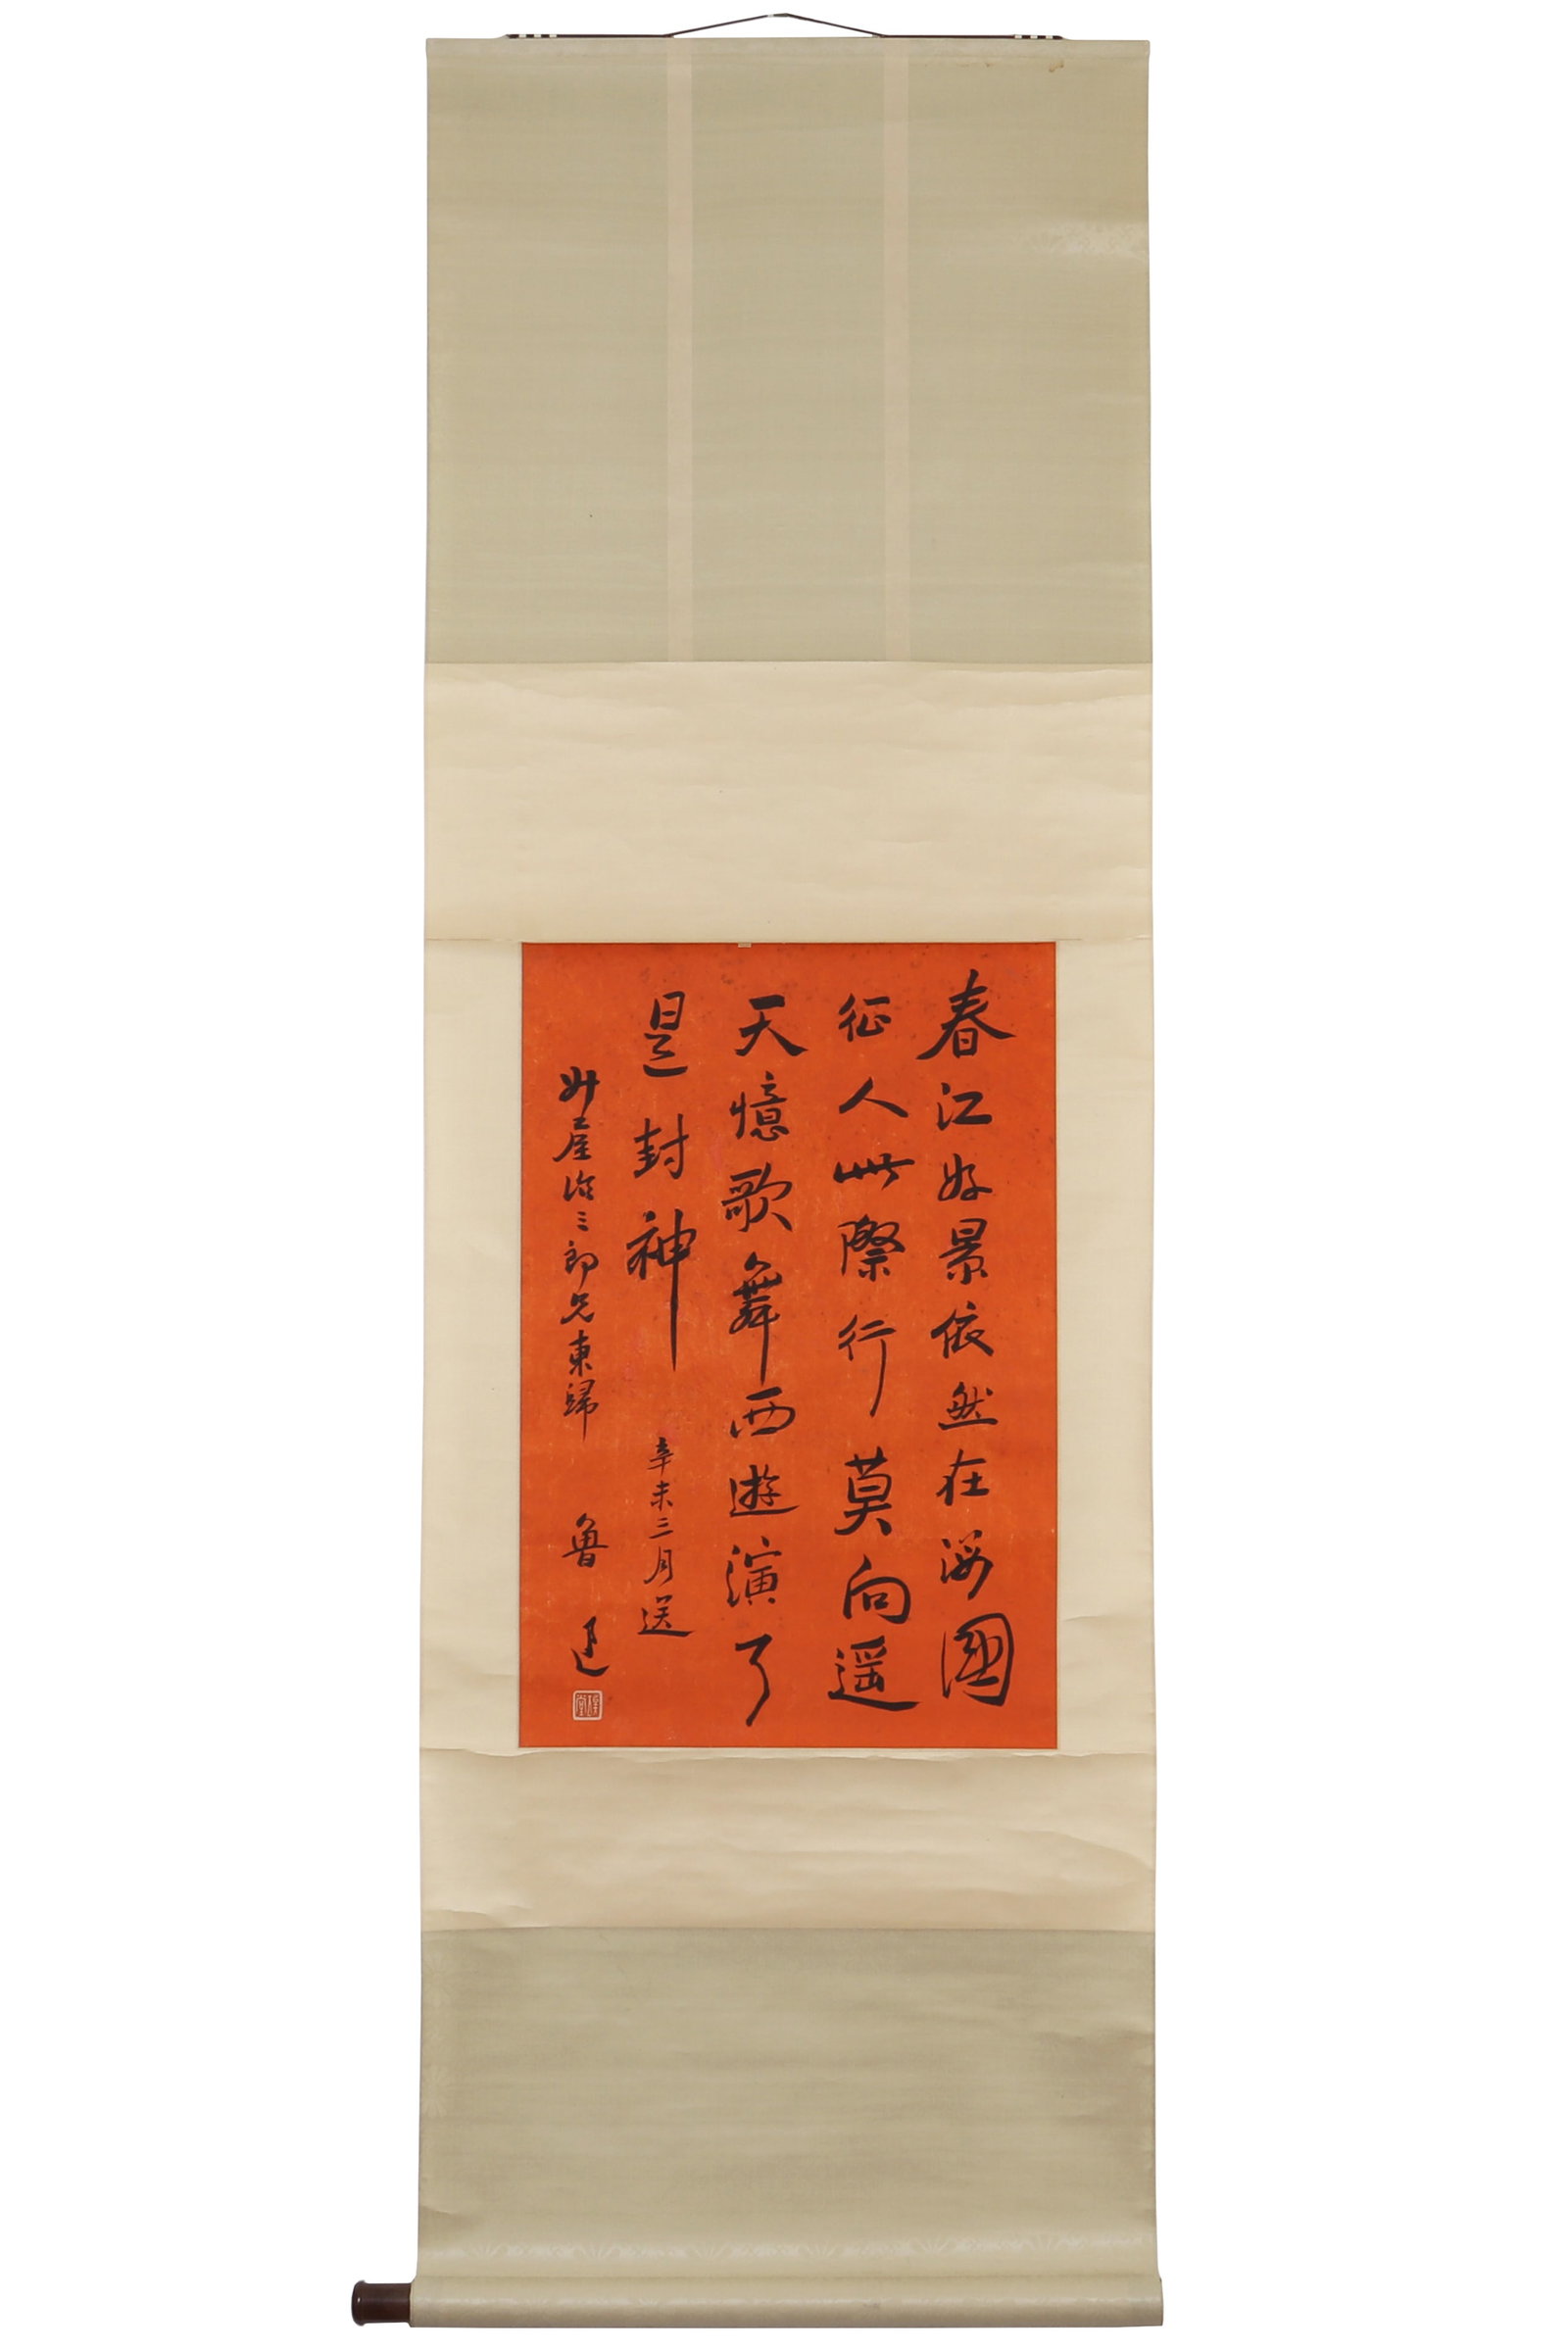 春江好景依然在海國
征人此際行莫向遥
天憶歌舞西遊演了
是封神
辛未三月送
升屋治三郎兄東歸
魯迅